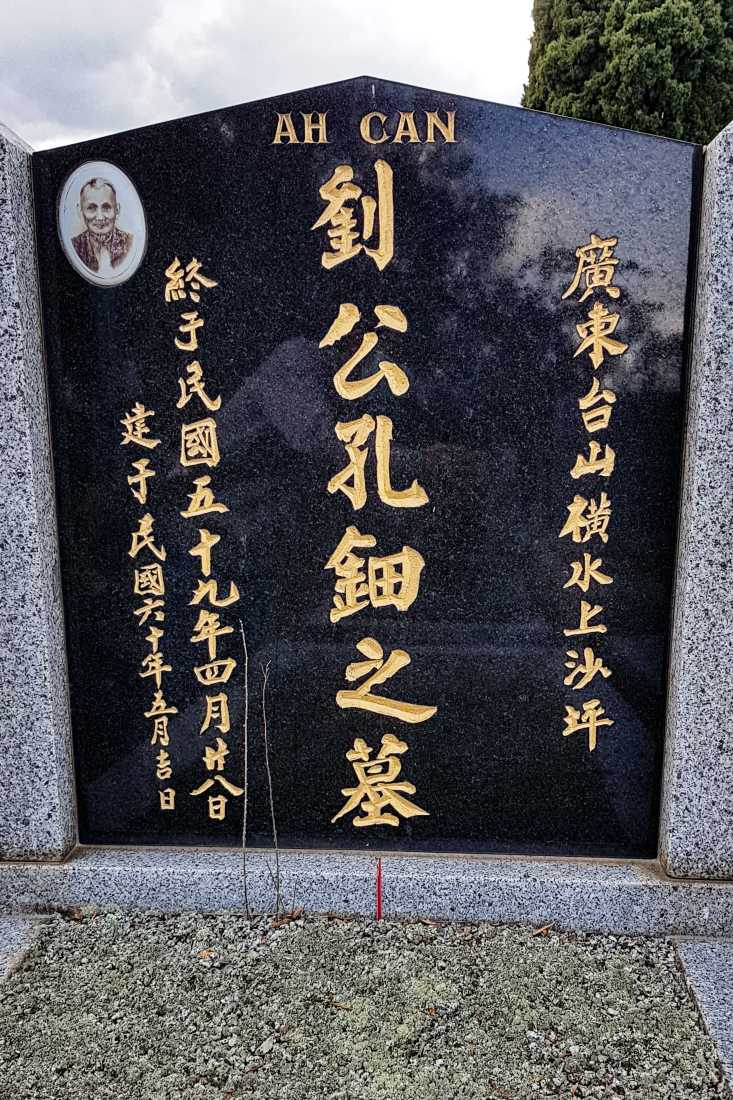 AH CAN
廣東台山橫水上沙坪
劉公孔鈿之墓
終于民國五十九年四月廿八日
建于民國六十年五月吉日